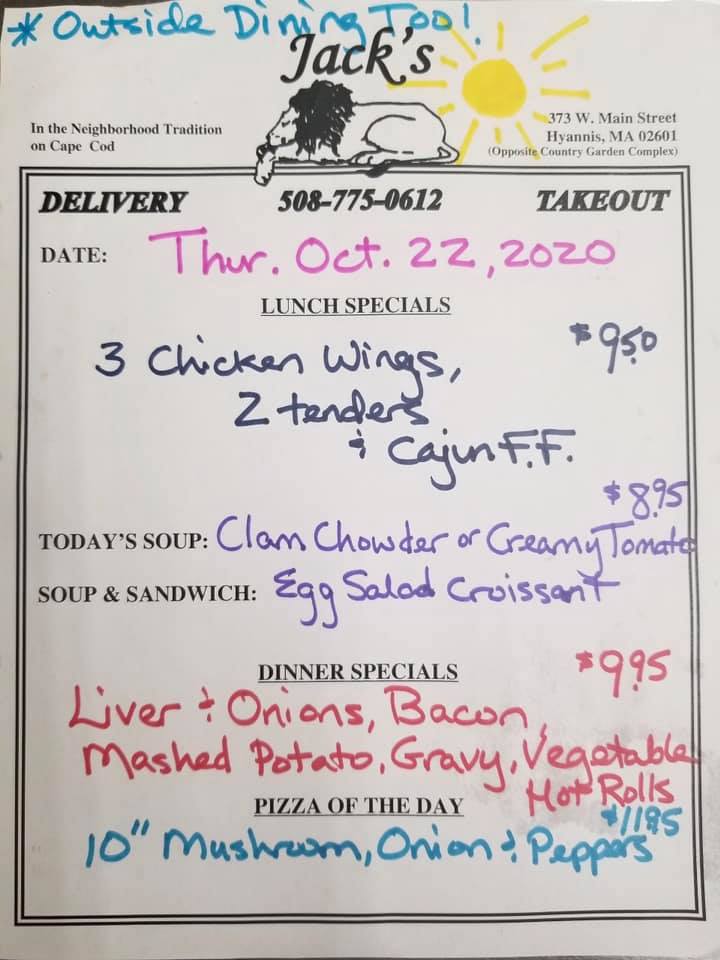 * Outside Dining Too!
Jack's
In the Neighborhood Tradition
on Cape Cod
373 W. Main Street
Hyannis, MA 02601
(Opposite Country Garden Complex)
DELIVERY 508-775-0612 TAKEOUT
DATE: Thur. Oct. 22, 2020
LUNCH SPECIALS
$9.50
3 Chicken Wings,
2 tenders
& Cajun F.F.
$8.95
TODAY'S SOUP: Clam Chowder or Creamy Tomato
SOUP & SANDWICH: Egg Salad Croissant
DINNER SPECIALS $9.95
Liver & Onions, Bacon,
Mashed Potato, Gravy, Vegetable
Hot Rolls
PIZZA OF THE DAY $11.95
10" Mushroom, Onion & Peppers